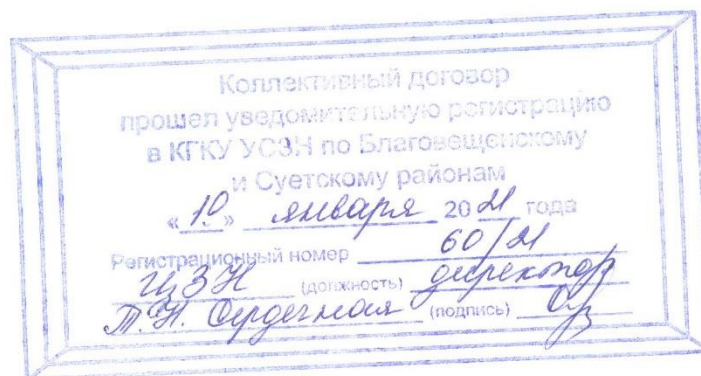 Коллективный договор
прошел уведомительную регистрацию
в КГКУ УСЗН по Благовещенскому
и Суетскому районам
«10» января 2021 года
Регистрационный номер 60/21
ЦЗН (должность) директор
Т.Н. Сердечная (подпись)